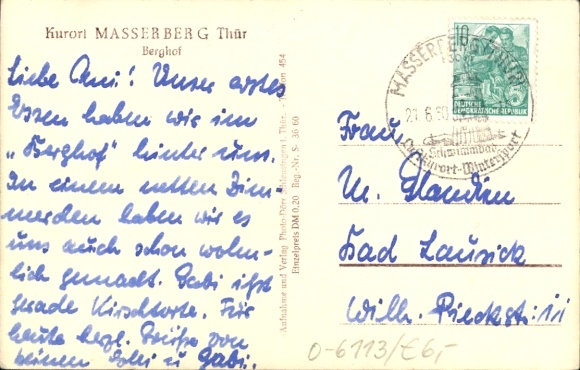 Kurort MASSERBERG Thür
Berghof
Liebe Omi! Unser erstes
Essen haben wir im
„Berghof" hinter uns.
In einem netten Zim-
merchen haben wir es
uns auch schon wohn-
lich gemacht. Gabi ißt
gerade Kirschtorte. Für
heute herzl. Grüße von
deinen u. Gabi.
Aufnahme und Verlag Photo-Dörr Thür.
454
Einzelpreis DM 0,20 Reg.-Nr. S- 36 60
10
DEUTSCHE
DEMOKRATISCHE REPUBLIK
MASSERBERG
21.6.60
Schwimmbad
Luftkurort-Wintersport
Frau
M.
Bad Lausick
Wilh. Pieckstr. 11
0-6113/€6,-